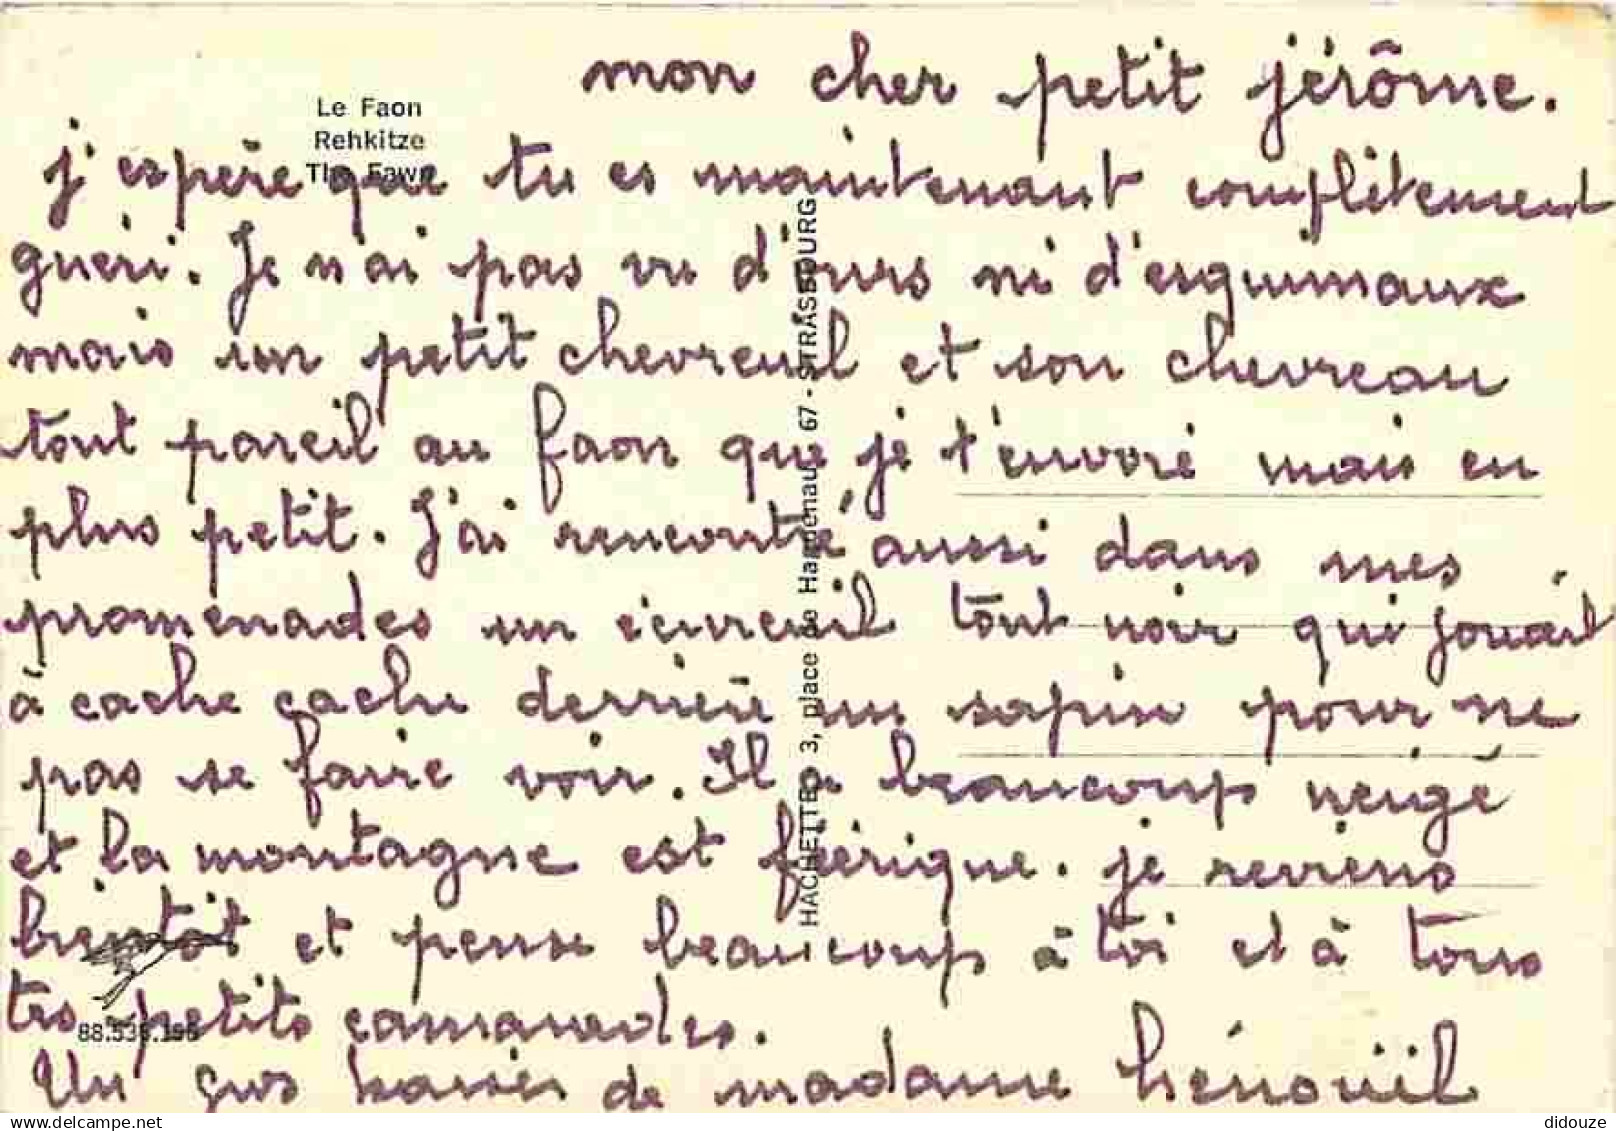 Le Faon
Rehkitze
The Fawn
mon cher petit jérôme.
j'espère que tu es maintenant complètement
guéri. Je n'ai pas vu d'ours ni d'esquimaux
mais un petit chevreuil et son chevreau
tout pareil au faon que je t'envoie mais en
plus petit. J'ai rencontré aussi dans mes
promenades un écureuil tout noir qui jouait
à cache cache derrière un sapin pour ne
pas se faire voir. Il a beaucoup neigé
et la montagne est féérique. je reviens
bientôt et pense beaucoup à toi et à tous
tes petits camarades.
Un gros baiser de madame
HACHETTE 3, place de Haguenau, 67 - STRASBOURG
delcampe.net
didouze